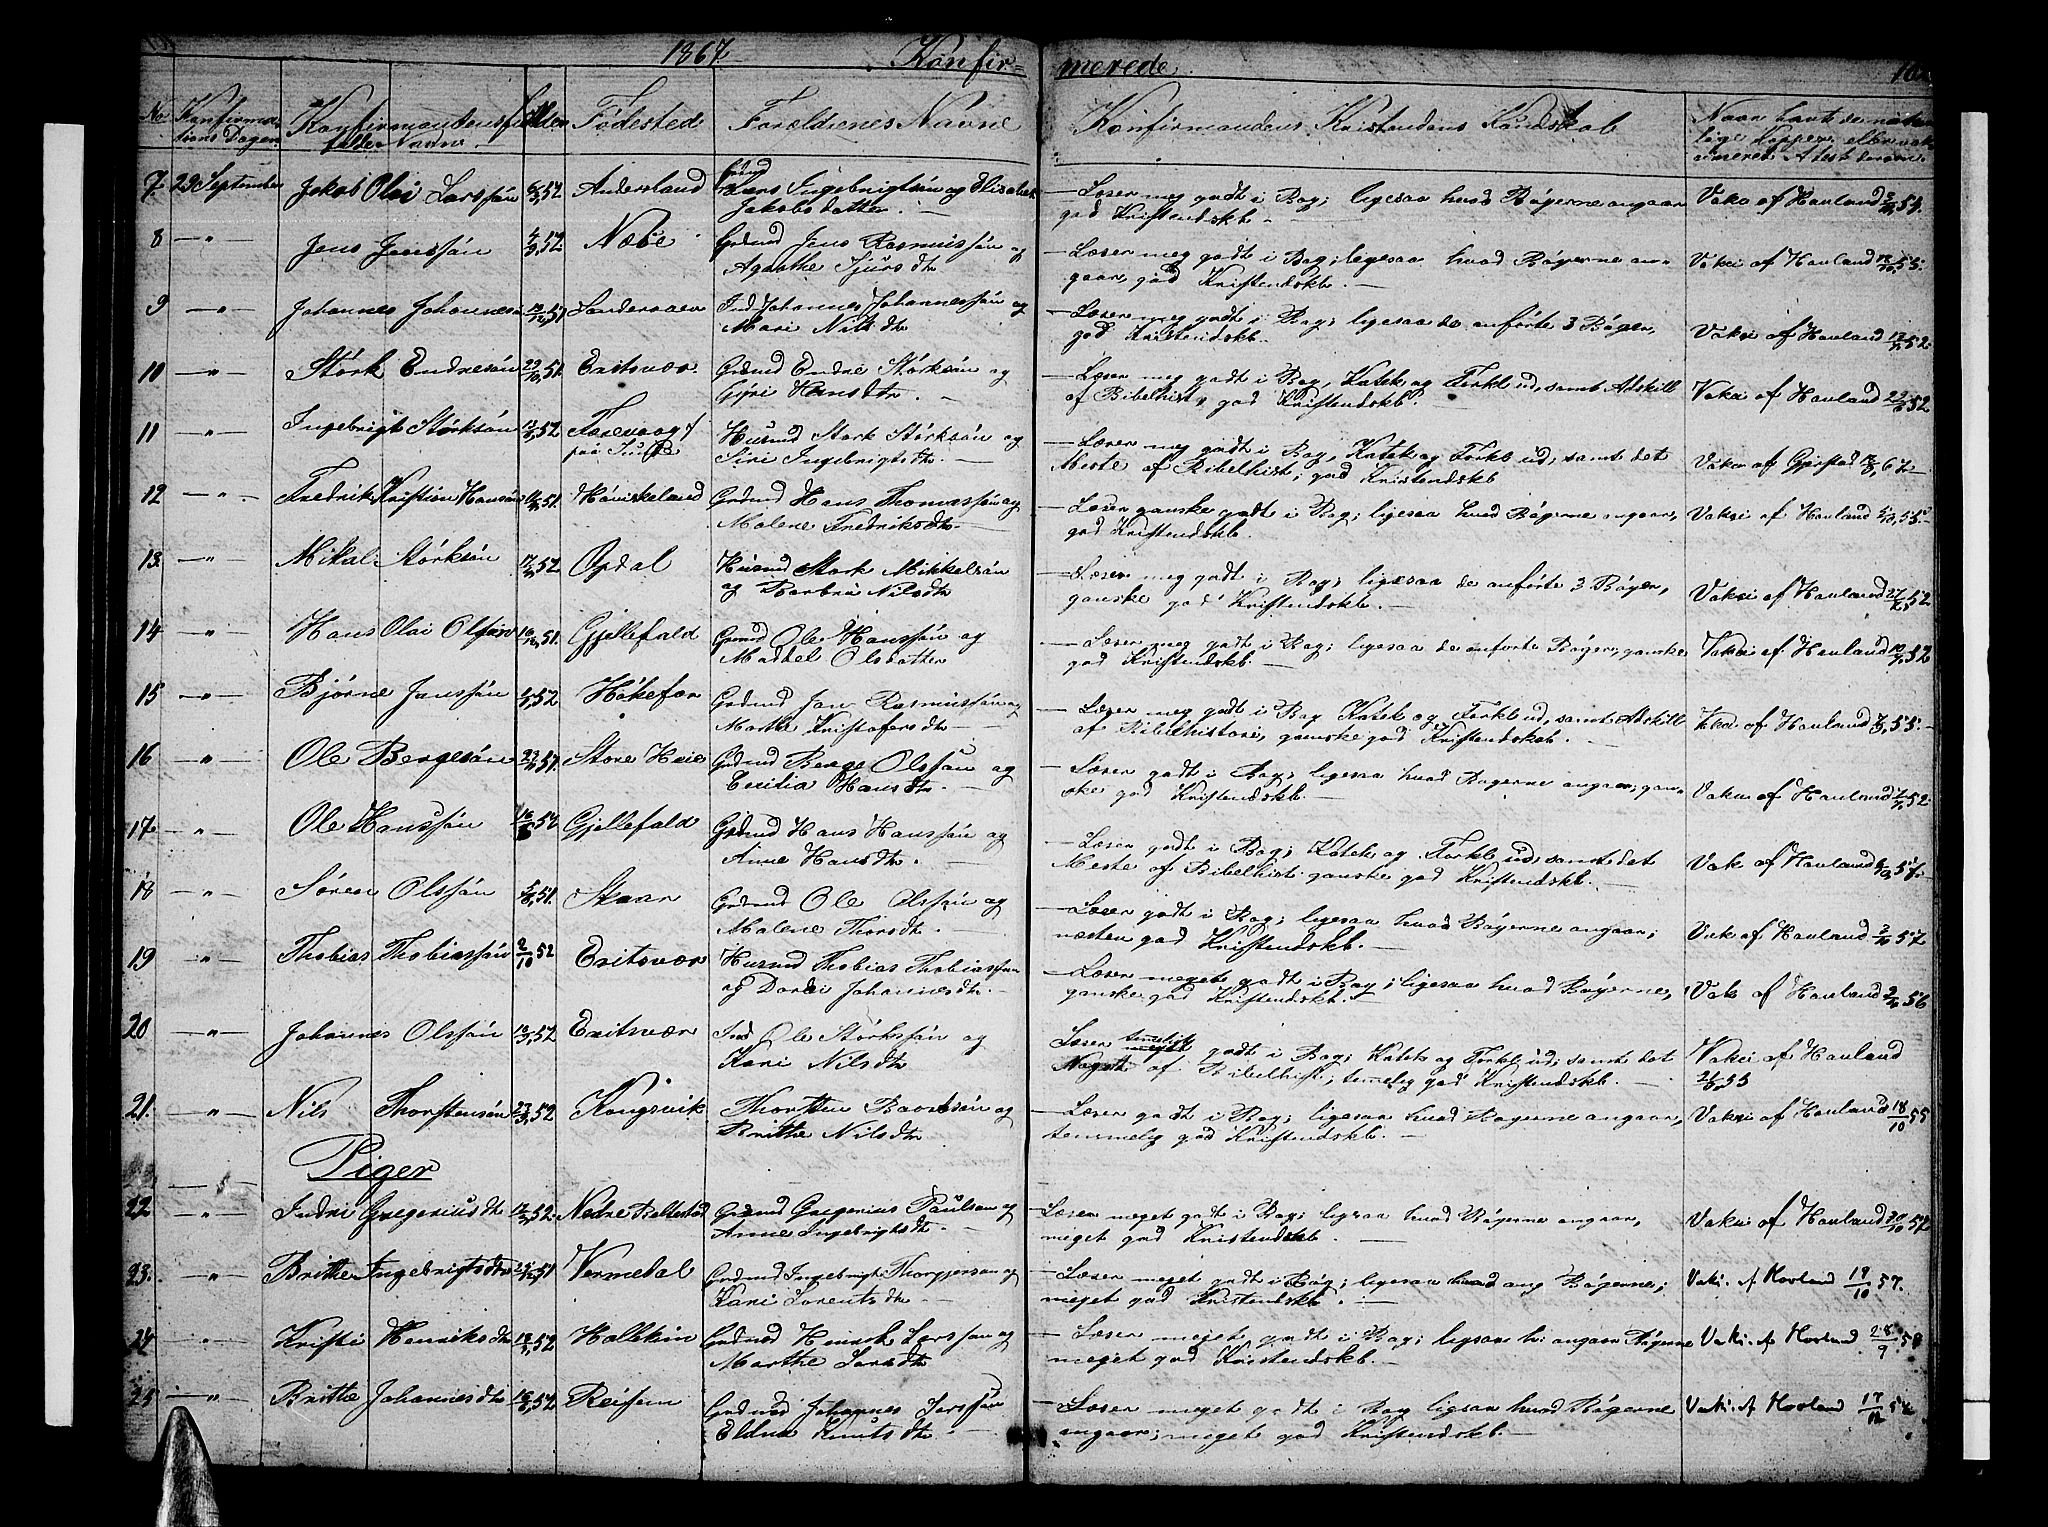 1867. Konfir=
merede.
No
Konfirma-
tions Dagen
Konfirmandens
fulde Navne
Alder
Fødested
Forældrenes Navne
Konfirmandens Kristendoms Kundskab
Naar havte de natur
lige Kopper eller vak
cineret Atest derom
7. 29 September Jakob Olai Larssøn 52 Andersland
Lars Ingebrigtsøn og Elisabet
Jakobsdatter. —
— Læser meg godt i Bog; ligesaa hvad Bøgerne angaar
god Kristendskb. —
Vakc af Havland
8 —"— Jens Jenssøn 52. Næbe Grdmd Jens Rasmussøn og
Agaathe Sjursdtr
— Læser meg godt i Bog; ligesaa hvad Bøgerne an-
gaar, god Kristendskb. —
Vakci af Havland 55.
9 —"— Johannes Johannessøn 51 Sandervaag Ind Johannes Johannessøn og
Mari Nilsdtr
— Læser meg godt i Bog; ligesaa de anførte 3 Bøger,
god Kristendskb. —
Vakci af Havland 52.
10 —"— Størk Endresøn 29/10 51. Eritsvær Grdmd Endre Størksøn og
Gjøri Hansdtr. —
— Læser meg godt i Bog, Katek og Forkl ud, samt Adskill
af Bibelhist, god Kristendskb. —
Vakci af Havland 52
11 —"— Ingebrigt Størksøn 52 Færevaag
Husmd Størk Størksøn og
Siri Ingebrigtsdtr. —
— Læser meg godt i Bog, Katek og Forkl ud, samt det
Meste af Bibelhist; god Kristendskb
Vakci af Gjerstad 67 —
12 —"— Fredrik Kristian Hansøn 51. Høviskeland Grdmd Hans Thomassøn og
Malene Fredriksdtr. —
— Læser ganske godt i Bog; ligesaa hvad Bøgerne angaar,
god Kristendskb.
Vakci af Havland 55.
13. —"— Mikal Størksøn 52 Opdal Husmd Størk Mikkelsøn
og Barbra Nilsdtr
— Læser meg godt i Bog; ligesaa de anførte 3 Bøger,
ganske god Kristendskb. —
Vakci af Havland 52
14 —"— Hans Olai Olssøn 51. Gjellefald Grdmd Ole Hanssøn og
Madtel Olsdatter
— Læser meg godt i Bog; ligesaa de anførte Bøger, ganske
god Kristendskb. —
Vakci af Havland 52
15 —"— Bjørne Janssøn 52 Høkefær Grdmd Jan Rasmussøn og
Marthe Kristofersdtr —
— Læser meg godt i Bog Katek og Forkl ud, samt Adskill
af Bibelhistorie, ganske god Kristendskab. —
Vakci af Havland 55.
16 —"— Ole Bergesøn 51. Store Hvie Grdmd Berge Olssøn og
Cecilia Hansdtr. —
— Læser godt i Bog; ligesaa hvad Bøgerne angaar; gan-
ske god Kristendskb. —
Vakci af Havland 52.
17. —"— Ole Hanssøn 52 Gjellefald Grdmd Hans Hanssøn og
Anne Hansdtr. —
— Læser godt i Bog; Katek og Forkl ud, samt det
Meste af Bibelhist: ganske god Kristendskb. —
Vak af Havland 57.
18 —"— Søren Olssøn 51. Skaar Grdmd Ole Olssøn og
Malene Thorsdtr. —
— Læser godt i Bog; ligesaa hvad Bøgerne angaar;
næsten god Kristendskb. —
Vak af Havland 57
19 —"— Thobias Thobiassøn 2/10 52 Eritsvær Husmd Thobias Thobiassøn
og Dordei Johannesdtr. —
— Læser meget godt i Bog; ligesaa hvad Bøgerne,
ganske god Kristendskb. —
Vak af Havland 56
20 —"— Johannes Olssøn 52 Eritsvær Ind Ole Størkssøn og
Kari Nilsdtr
Læser temelig meget godt i Bog; Katek og Forkl ud; samt det
Noget af Bibelhist.; temelig god Kristendskb. —
Vakci af Havland
55
21. —"— Nils Thorstensøn 52 Kongsvik Thorsten Baardsøn og
Britthe Nilsdtr
— Læser godt i Bog; ligesaa hvad Bøgerne angaar,
temmelig god Kristendskb. —
Vakci af Havland 18/10 55
Piger
22 —"— Indri Gregoriusdtr 52. Nedre Bolstad Grdmd Gregorius Paulsøn og
Anne Ingebrigtsdtr. —
Læser meget godt i Bog; ligesaa hvad Bøgerne angaar,
meget god Kristendskb. —
Vakci af Havland 57
23. —"— Britthe Ingebrigtsdtr 51 Vermedal Grdmd Ingebrigt Thorgjersøn og
Kari Lorentsdtr —
— Læser meget godt i Bog; ligesaa hvad ang Bøgerne;
meget god Kristendskb. —
Vaki. af Hovland 19/10 57.
24 —"— Kristi Henriksdtr 52 Hallekin Grdmd Henrik Larssøn og
Marthe Larsdtr
— Læser meget godt i Bog; ligesaa hv: angaar Bøgerne
meget god Kristendskb. —
Vaki. af Hovland. 28/9 58
25 —"— Britte Johannesdtr 52 Reisem Grdmd Johannes Larssøn
Eldna Knutsdtr. —
— Læser meget godt i Bog ligesaa hvad Bøgerne
angaar; meget god Kristendskb. —
Vaki. af Hovland 17/12